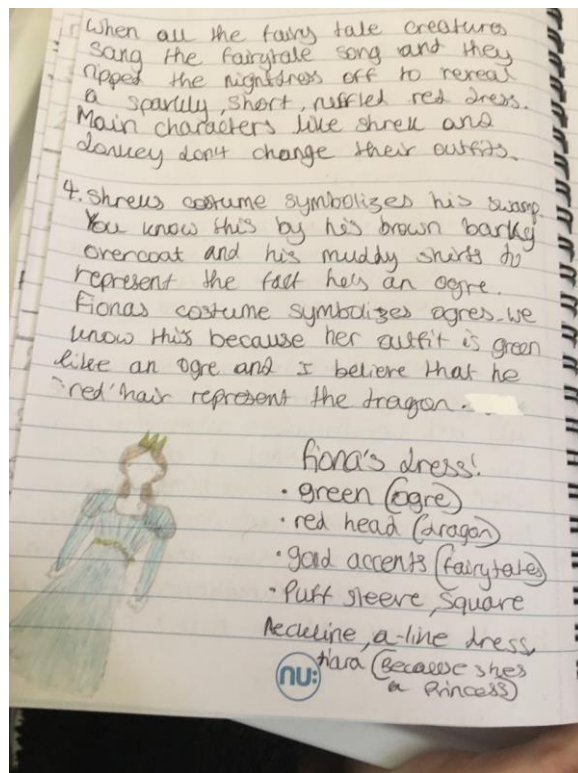 when all the fairy tale creatures
sang the fairytale song and they
ripped the nightdress off to reveal
a sparkly, short, ruffled red dress.
Main characters like shrek and
donkey don't change their outfits.
4. Shreks costume symbolizes his swamp.
You know this by his brown barky
overcoat and his muddy shirts to
represent the fact he's an ogre.
Fionas costume symbolizes ogres. we
know this because her outfit is green
like an ogre and I believe that he
'red' hair represent the dragon.
Fiona's dress!
• green (ogre)
• red head (dragon)
• gold accents (fairytales)
• Puff sleeve, square
neckline, a-line dress,
tiara (Because shes
a Princess)
nu: